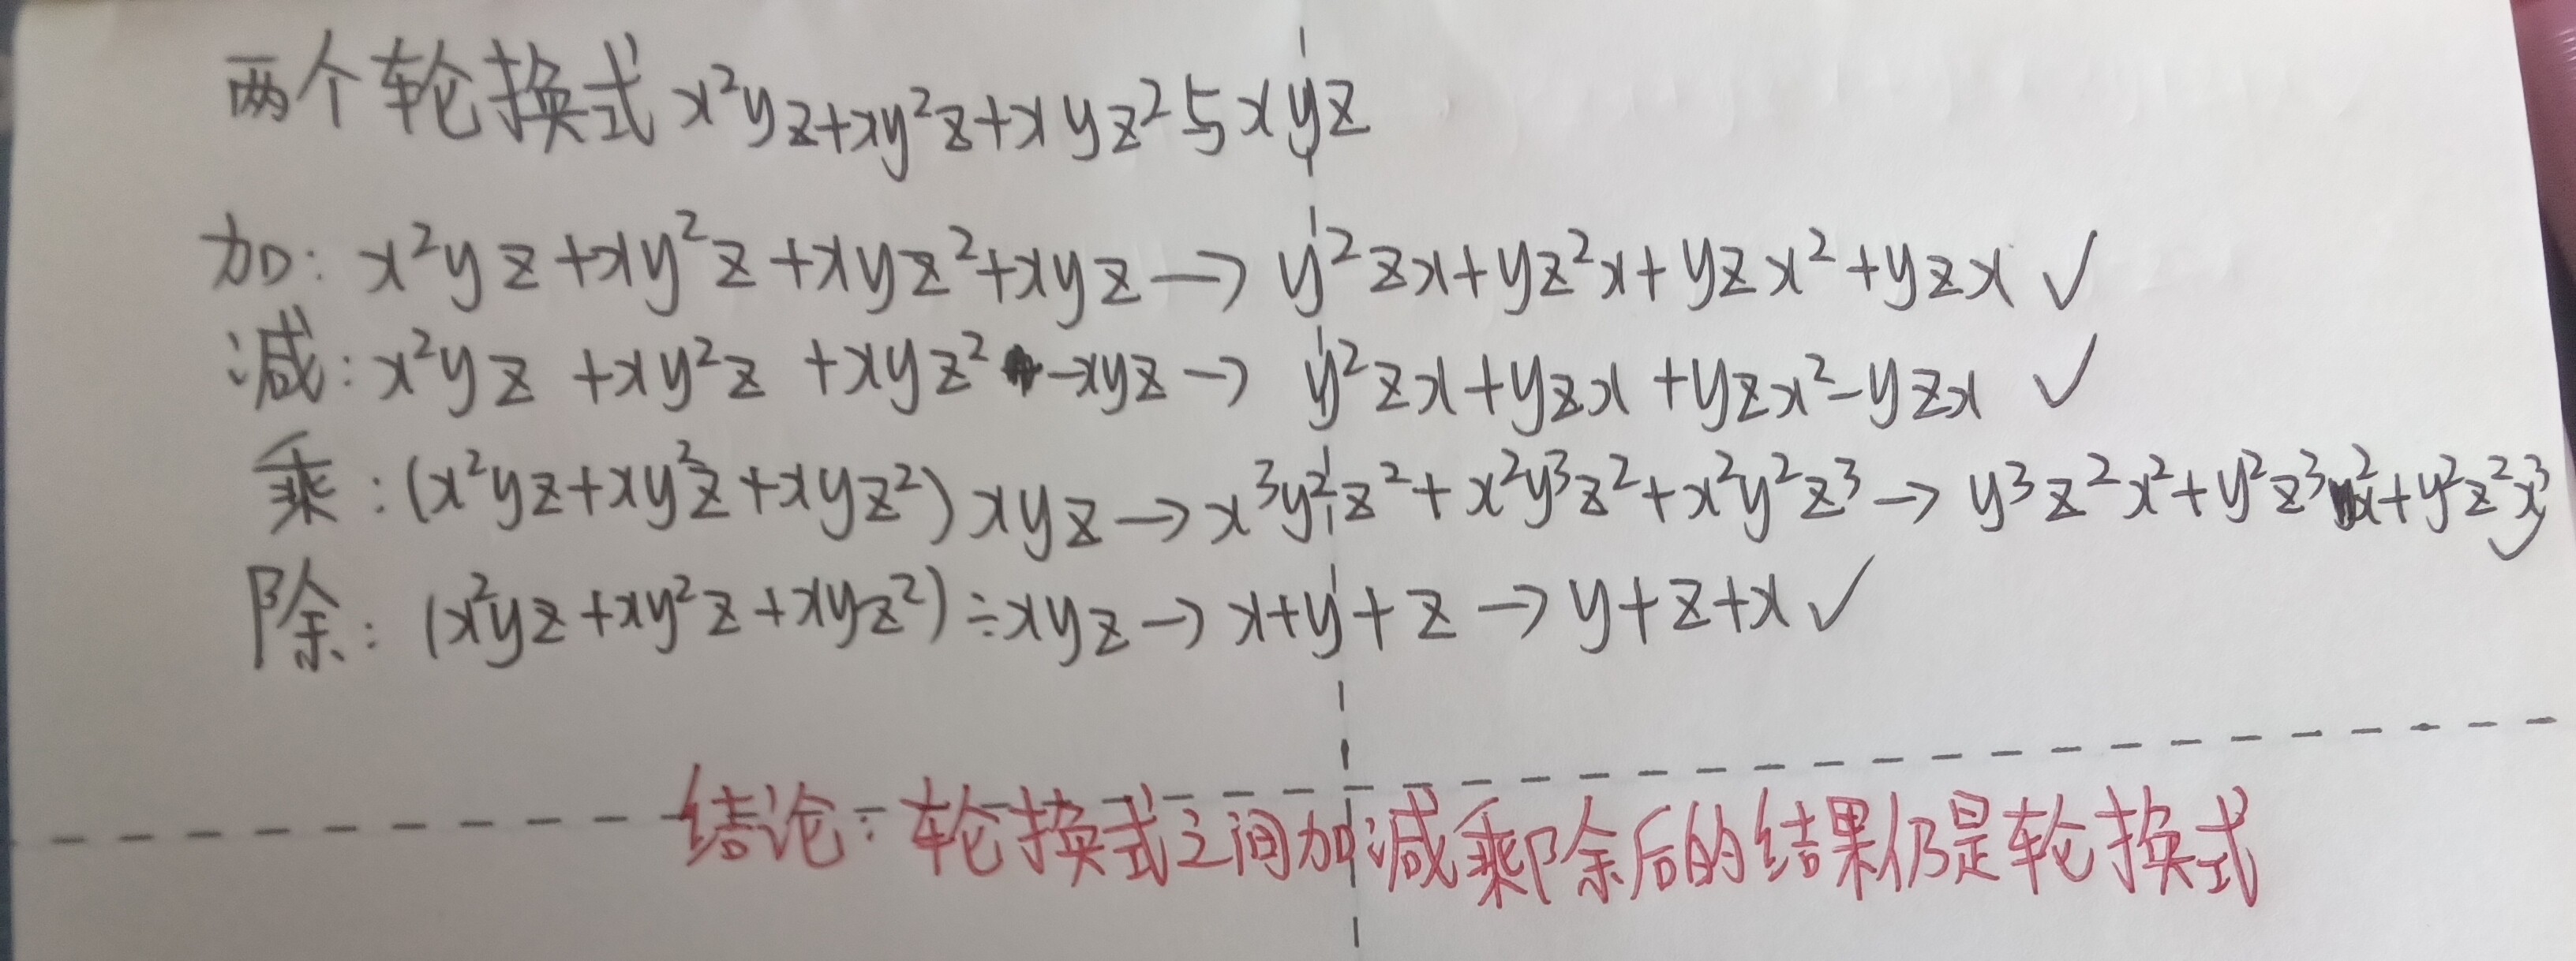 两个轮换式x²yz+xy²z+xyz²与xyz
加: x²yz+xy²z+xyz²+xyz→y²zx+yz²x+yzx²+yzx✓
减: x²yz+xy²z+xyz²-xyz→y²zx+yzx+yzx²-yzx✓
乘: (x²yz+xy²z+xyz²)xyz→x³y²z²+x²y³z²+x²y²z³→y³z²x²+y²z³x²+y²z²x³✓
除: (x²yz+xy²z+xyz²)÷xyz→x+y+z→y+z+x✓
结论:轮换式之间加减乘除后的结果仍是轮换式